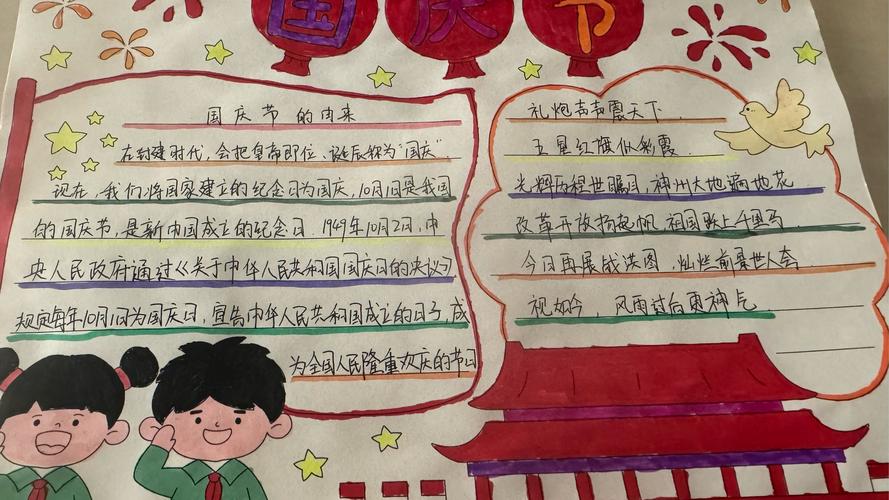 国庆节
国庆节的由来
在封建时代，会把皇帝即位、诞辰称为“国庆”.
现在，我们将国家建立的纪念日为国庆，10月1日是我国
的国庆节，是新中国成立的纪念日.1949年10月2日，中
央人民政府通过《关于中华人民共和国国庆日的决议》
规定每年10月1日为国庆日，宣告中华人民共和国成立的日子，成
为全国人民隆重欢庆的节日
礼炮声声震天下.
五星红旗似彩霞.
光辉历程世瞩目，神州大地遍地花
改革开放扬起帆 祖国路上千里马
今日再展战洪图，灿烂前景世人夸
视如今，风雨过后更神气